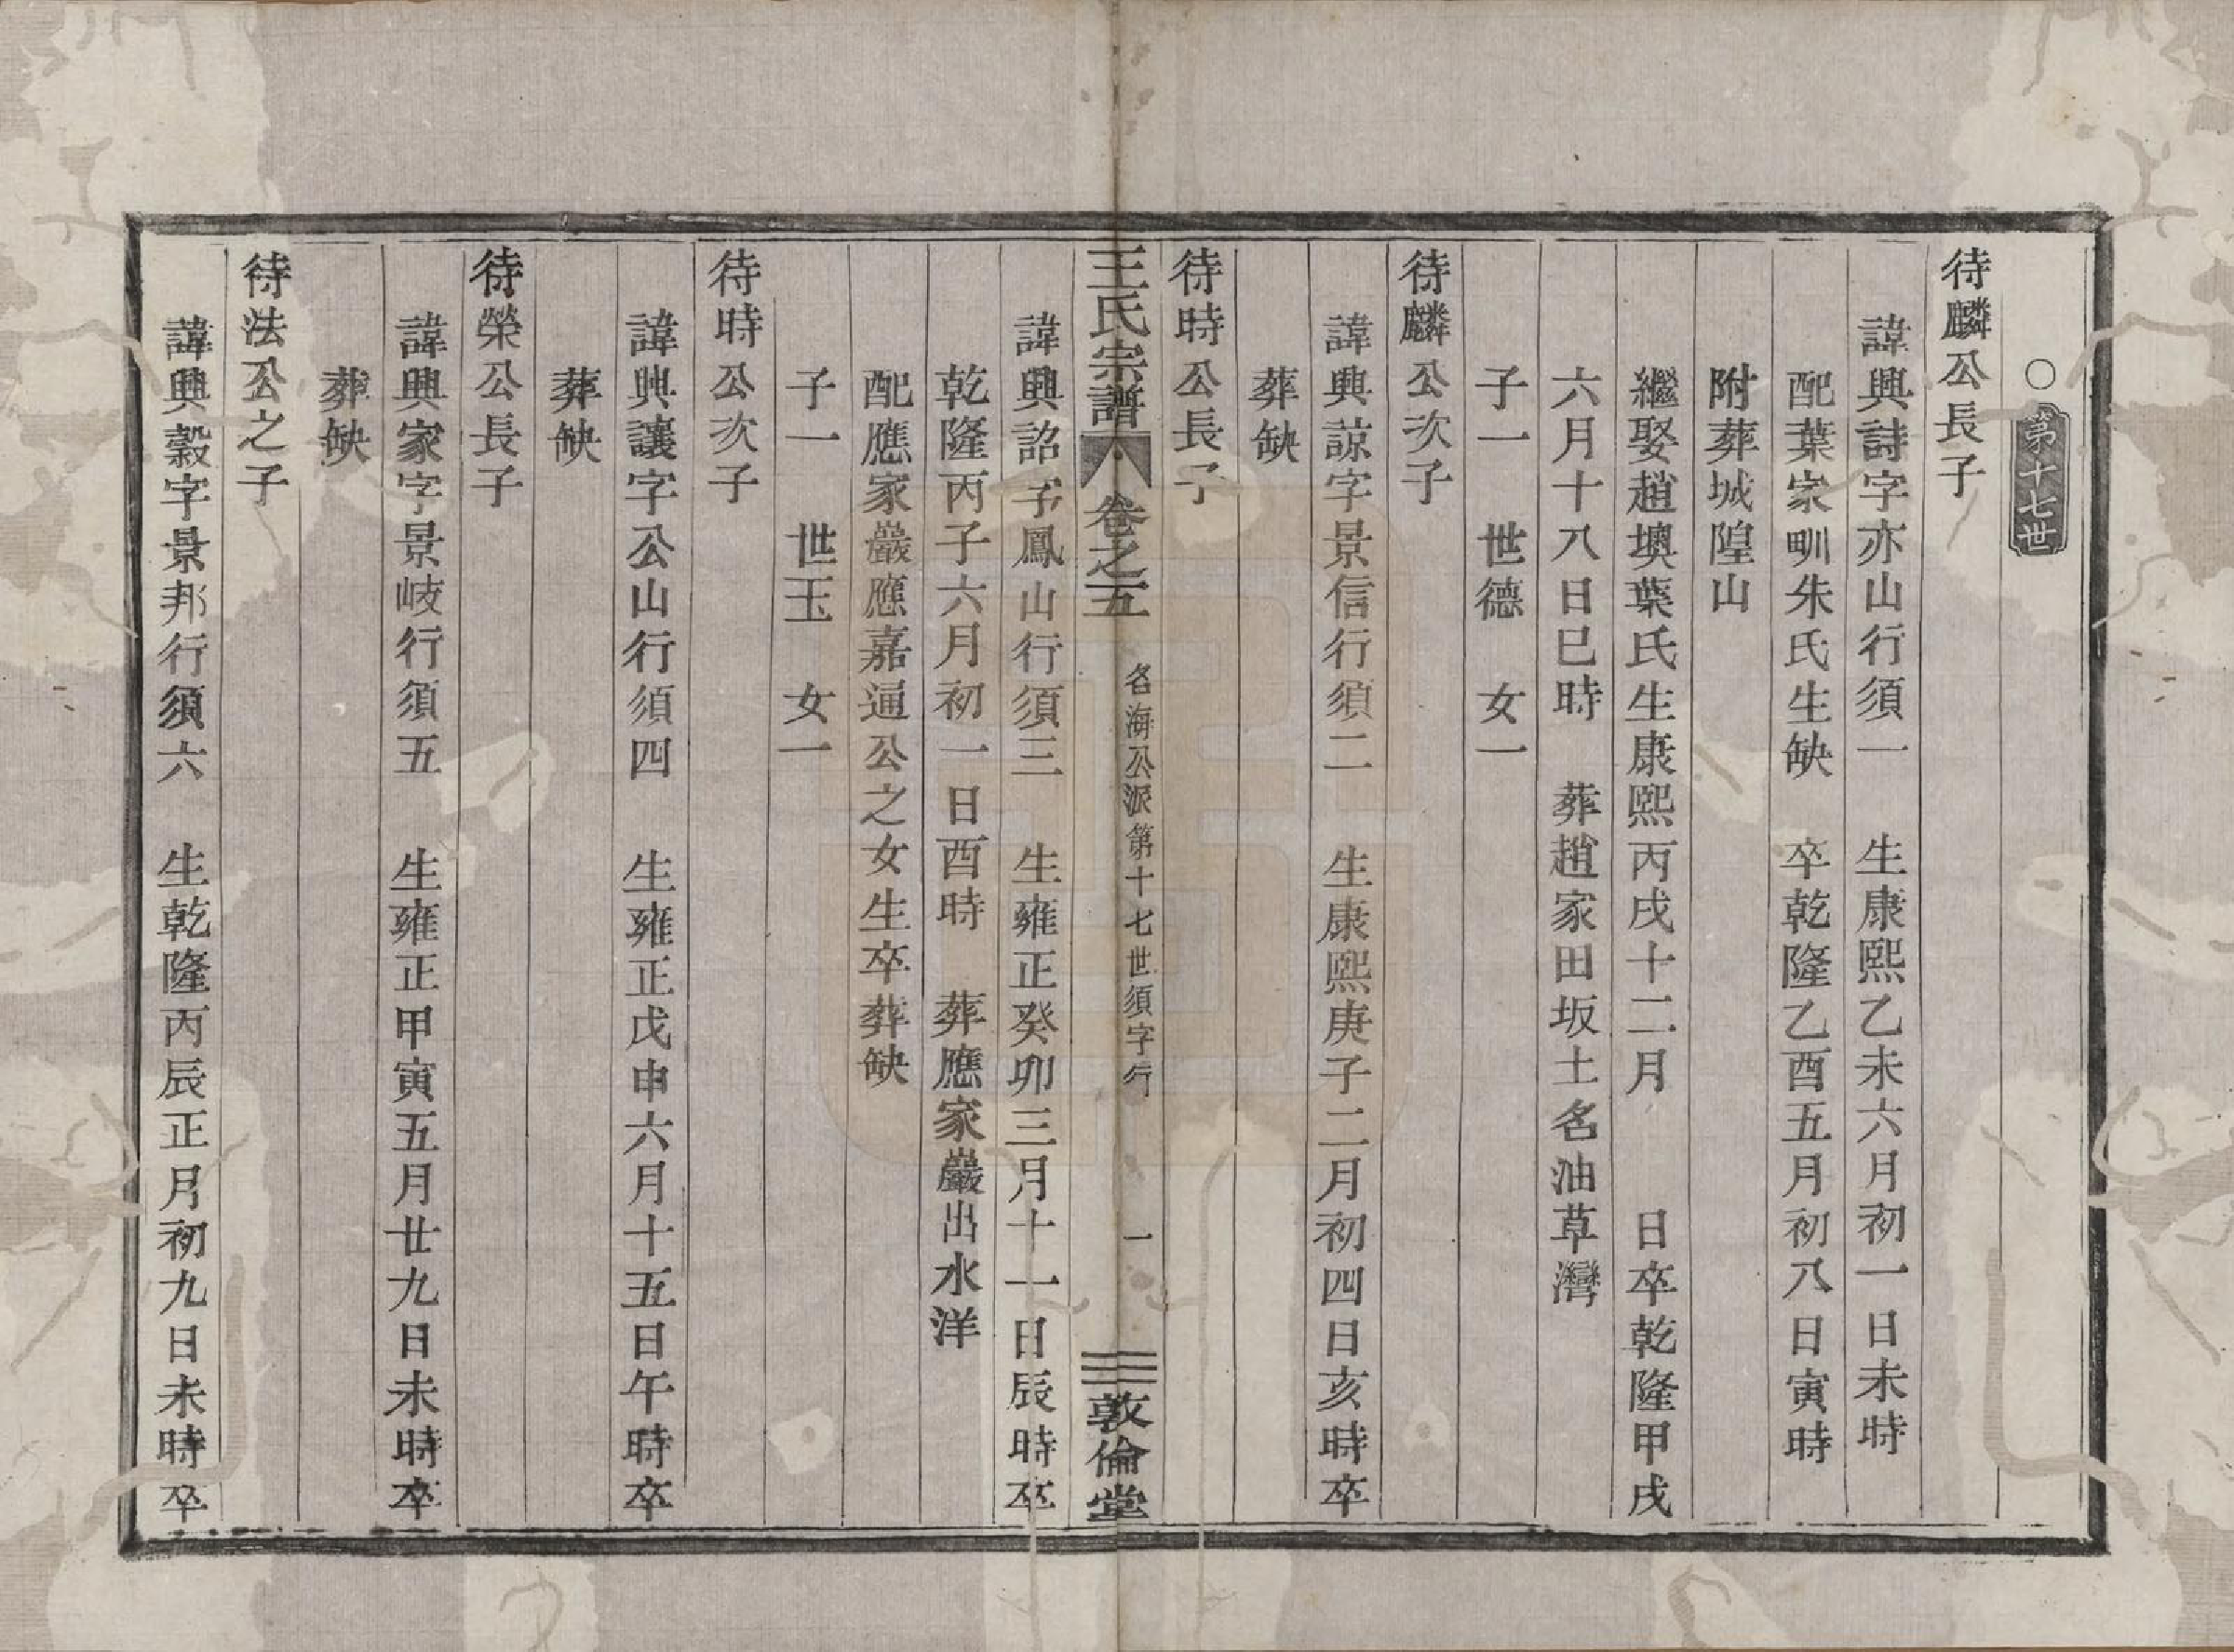 ○第十七世
待麟公長子
諱興詩字亦山行須一　生康熙乙未六月初一日未時
配葉家甽朱氏生缺　卒乾隆乙酉五月初八日寅時
附葬城隍山
繼娶趙墺葉氏生康熙丙戌十二月　日卒乾隆甲戌
六月十八日巳時　葬趙家田坂土名油草灣
子一　世德　女一
待麟公次子
諱興諒字景信行須二　生康熙庚子二月初四日亥時卒
葬缺
待時公長子
王氏宗譜　卷之五　名海公派第十七世須字行　一　敦倫堂
諱興詔字鳳山行須三　生雍正癸卯三月十一日辰時卒
乾隆丙子六月初一日酉時　葬應家巖出水洋
配應家巖應嘉通公之女生卒葬缺
子一　世玉　女一
待時公次子
諱興讓字公山行須四　生雍正戊申六月十五日午時卒
葬缺
待榮公長子
諱興家字景岐行須五　生雍正甲寅五月廿九日未時卒
葬缺
待法公之子
諱興穀字景邦行須六　生乾隆丙辰正月初九日未時卒